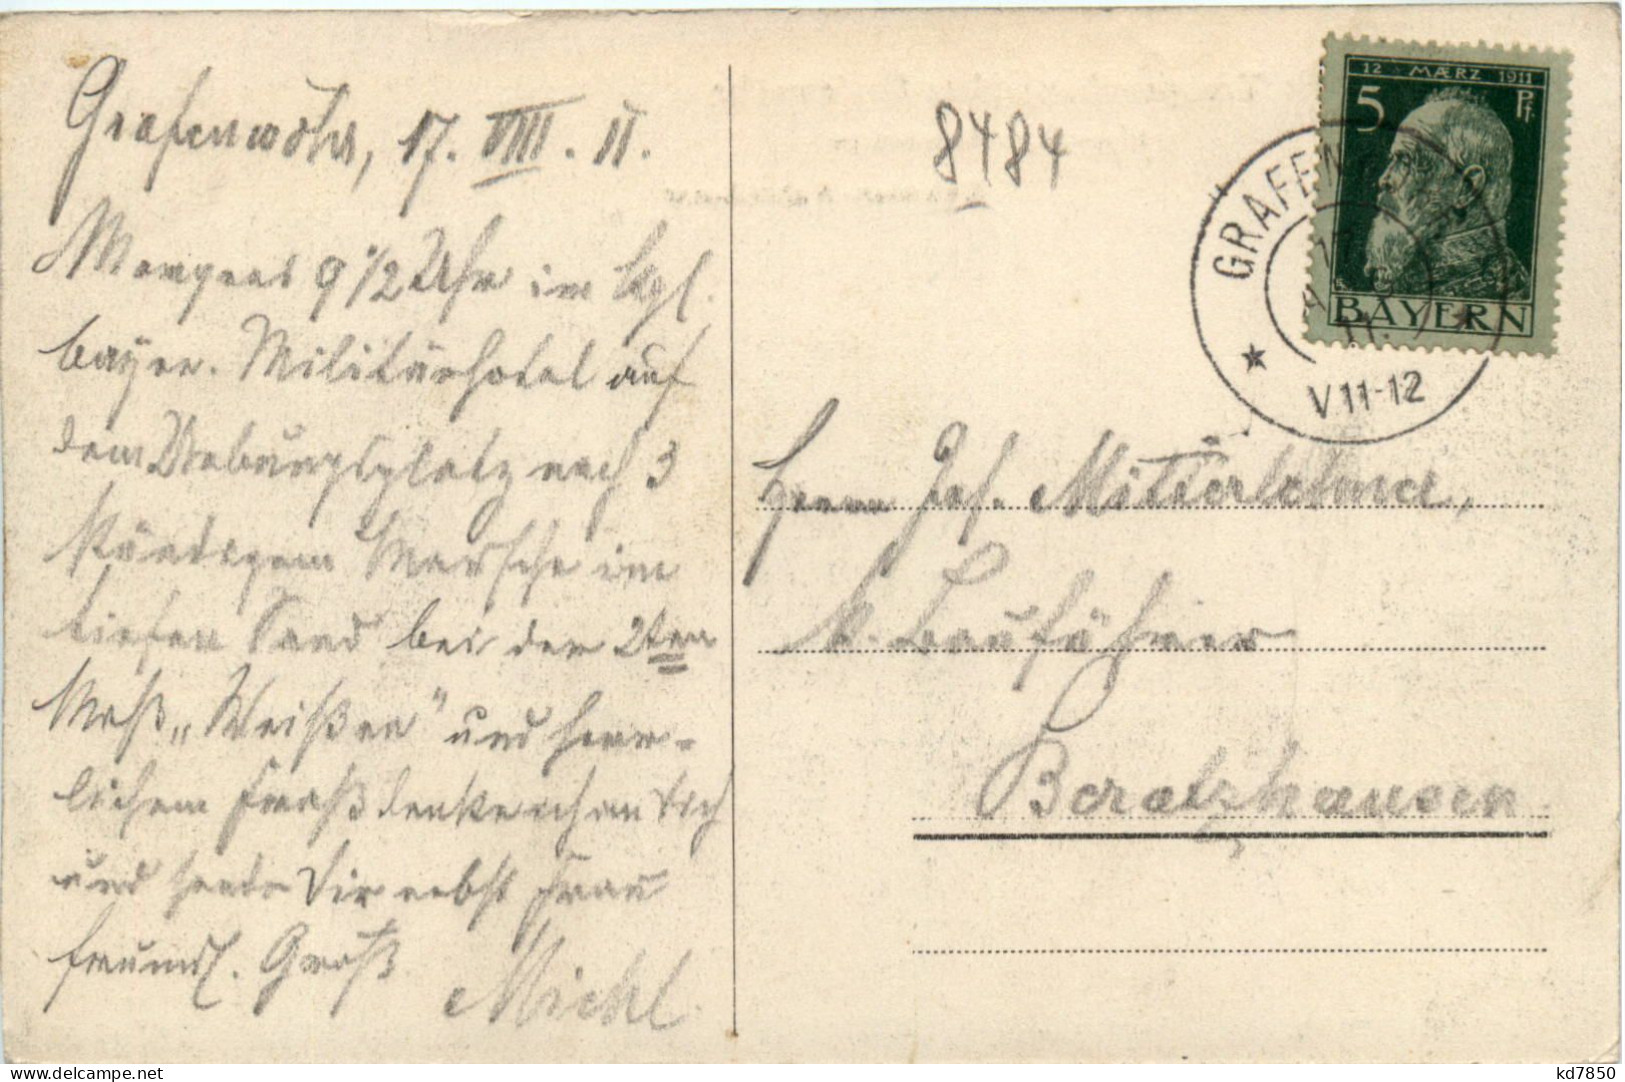 Grafenwöhr, 17. VIII. 11.
Morgens 9 1/2 Uhr im kgl.
bayer. Militärhotel auf
dem Uebungsplatz nach 3
ständigem Marsche im
tiefen Sand bei der 2ten
Maß „Weißen" und herr-
lichem Fraß denke ich an Dich
und sende Dir nebst Frau
freundl. Gruß
Michl
8484
12 MÆRZ 1911
5 Pf
BAYERN
GRAFENWÖHR
V 11-12
Herrn Jos.
k. Bauführer
Beratzhausen
kd7850